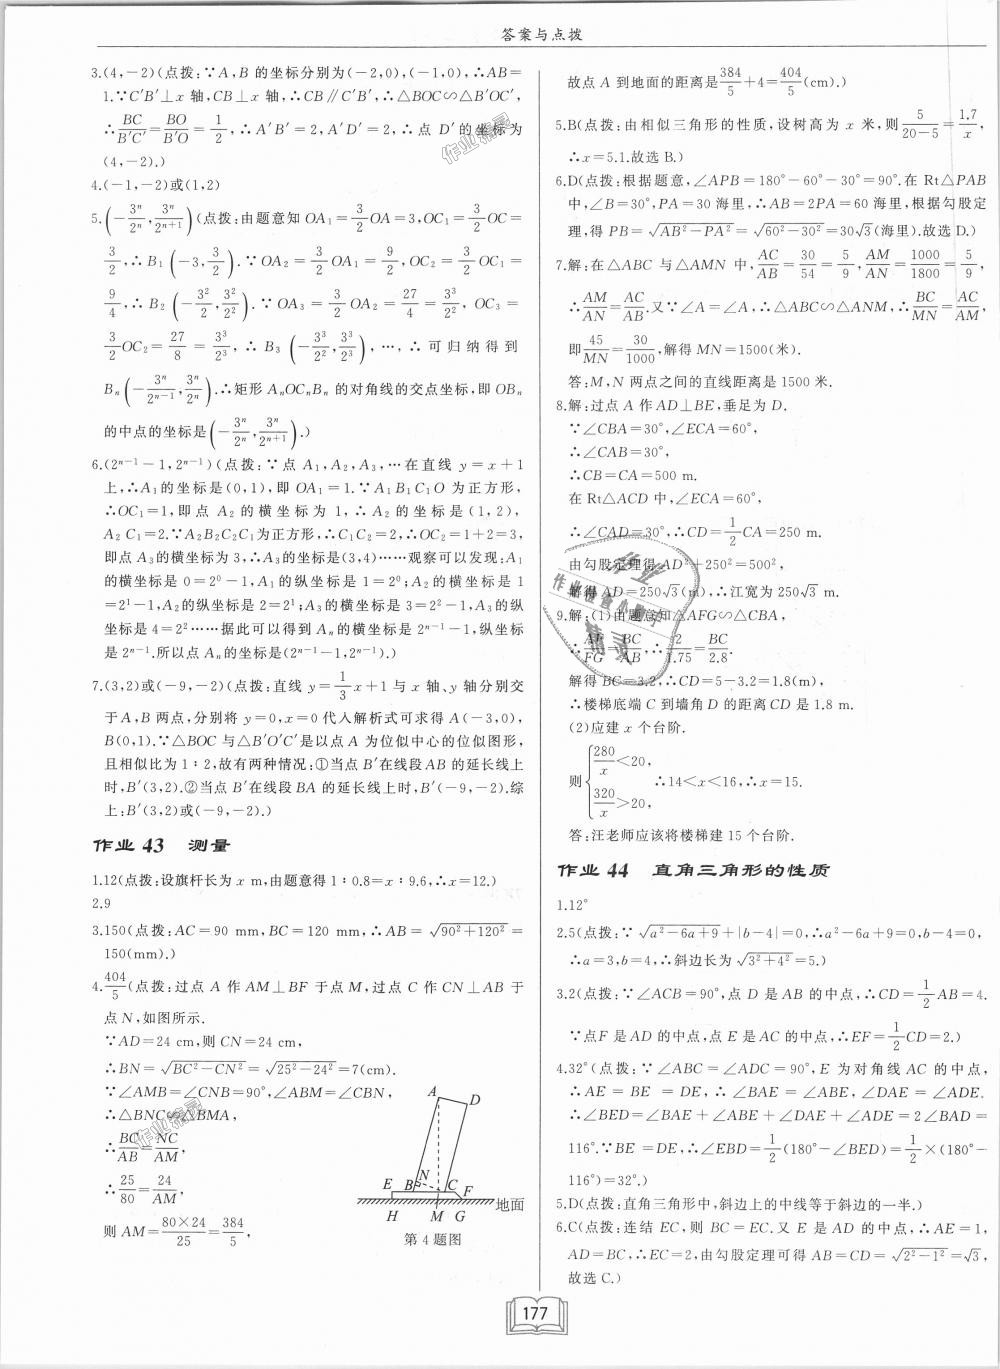 答案与点拨
3.(4,-2)(点拨:∵A,B 的坐标分别为(-2,0),(-1,0),∴AB=
1.∵C'B'⊥x 轴,CB⊥x 轴,∴CB∥C'B',∴△BOC∽△B'OC',
∴BC/B'C'=BO/B'O=1/2,∴A'B'=2,A'D'=2,∴点 D'的坐标为
(4,-2).)
4.(-1,-2)或(1,2)
5.(-3ⁿ/2ⁿ,3ⁿ/2ⁿ⁺¹)(点拨:由题意知 OA₁=3/2OA=3,OC₁=3/2OC=
3/2,∴B₁(-3,3/2).∵OA₂=3/2OA₁=9/2,OC₂=3/2OC₁=
9/4,∴B₂(-3²/2,3²/2²).∵OA₃=3/2OA₂=27/4=3³/2²,OC₃=
3/2OC₂=27/8=3³/2³,∴B₃(-3³/2²,3³/2³),…,∴可归纳得到
Bₙ(-3ⁿ/2ⁿ⁻¹,3ⁿ/2ⁿ).∴矩形 AₙOCₙBₙ 的对角线的交点坐标,即 OBₙ
的中点的坐标是(-3ⁿ/2ⁿ,3ⁿ/2ⁿ⁺¹).)
6.(2ⁿ⁻¹-1,2ⁿ⁻¹)(点拨:∵点 A₁,A₂,A₃,…在直线 y=x+1
上,∴A₁的坐标是(0,1),即 OA₁=1.∵A₁B₁C₁O 为正方形,
∴OC₁=1,即点 A₂ 的横坐标为 1,∴A₂ 的坐标是(1,2),
A₂C₁=2.∵A₂B₂C₂C₁为正方形,∴C₁C₂=2,∴OC₂=1+2=3,
即点 A₃的横坐标为 3,∴A₃的坐标是(3,4)……观察可以发现:A₁
的横坐标是 0=2⁰-1,A₁的纵坐标是 1=2⁰;A₂的横坐标是 1
=2¹-1,A₂的纵坐标是 2=2¹;A₃的横坐标是 3=2²-1,A₃的纵
坐标是 4=2²……据此可以得到 Aₙ的横坐标是 2ⁿ⁻¹-1,纵坐标
是 2ⁿ⁻¹.所以点 Aₙ的坐标是(2ⁿ⁻¹-1,2ⁿ⁻¹).)
7.(3,2)或(-9,-2)(点拨:直线 y=1/3x+1 与 x 轴、y 轴分别交
于 A,B 两点,分别将 y=0,x=0 代入解析式可求得 A(-3,0),
B(0,1).∵△BOC 与△B'O'C'是以点 A 为位似中心的位似图形,
且相似比为 1:2,故有两种情况:①当点 B'在线段 AB 的延长线上
时,B'(3,2).②当点 B'在线段 BA 的延长线上时,B'(-9,-2).综
上:B'(3,2)或(-9,-2).)
作业 43 测量
1.12(点拨:设旗杆长为 x m,由题意得 1:0.8=x:9.6,∴x=12.)
2.9
3.150(点拨:AC=90 mm,BC=120 mm,∴AB=√(90²+120²)=
150(mm).)
4.404/5(点拨:过点 A 作 AM⊥BF 于点 M,过点 C 作 CN⊥AB 于
点 N,如图所示.
∵AD=24 cm,则 CN=24 cm,
∴BN=√(BC²-CN²)=√(25²-24²)=7(cm).
∵∠AMB=∠CNB=90°,∠ABM=∠CBN,
∴△BNC∽△BMA,
∴BC/AB=NC/AM,
∴25/80=24/AM,
则 AM=80×24/25=384/5,
A
D
N
E B C F
地面
H M G
第 4 题图
故点 A 到地面的距离是384/5+4=404/5(cm).)
5.B(点拨:由相似三角形的性质,设树高为 x 米,则5/(20-5)=1.7/x,
∴x=5.1.故选 B.)
6.D(点拨:根据题意,∠APB=180°-60°-30°=90°.在 Rt△PAB
中,∠B=30°,PA=30 海里,∴AB=2PA=60 海里,根据勾股定
理,得 PB=√(AB²-PA²)=√(60²-30²)=30√3(海里).故选 D.)
7.解:在△ABC 与△AMN 中,AC/AB=30/54=5/9,AM/AN=1000/1800=5/9,
∴AM/AN=AC/AB.又∵∠A=∠A,∴△ABC∽△ANM,∴BC/MN=AC/AM,
即45/MN=30/1000,解得 MN=1500(米).
答:M,N 两点之间的直线距离是 1500 米.
8.解:过点 A 作 AD⊥BE,垂足为 D.
∵∠CBA=30°,∠ECA=60°,
∴∠CAB=30°,
∴CB=CA=500 m.
在 Rt△ACD 中,∠ECA=60°,
∴∠CAD=30°,∴CD=1/2CA=250 m.
由勾股定理得 AD²+250²=500²,
解得 AD=250√3(m),∴江宽为 250√3 m.
9.解:(1)由题意知△AFG∽△CBA,
∴AF/FG=BC/AB,∴2/1.75=BC/2.8.
解得 BC=3.2,∴CD=5-3.2=1.8(m),
∴楼梯底端 C 到墙角 D 的距离 CD 是 1.8 m.
(2)应建 x 个台阶.
则{280/x<20, 320/x>20,∴14<x<16,∴x=15.
答:汪老师应该将楼梯建 15 个台阶.
作业 44 直角三角形的性质
1.12°
2.5(点拨:∵√(a²-6a+9)+|b-4|=0,∴a²-6a+9=0,b-4=0,
∴a=3,b=4,∴斜边长为√(3²+4²)=5.)
3.2(点拨:∵∠ACB=90°,点 D 是 AB 的中点,∴CD=1/2AB=4.
∵点 F 是 AD 的中点,点 E 是 AC 的中点,∴EF=1/2CD=2.)
4.32°(点拨:∵∠ABC=∠ADC=90°,E 为对角线 AC 的中点,
∴AE=BE=DE,∴∠BAE=∠ABE,∠DAE=∠ADE.
∴∠BED=∠BAE+∠ABE+∠DAE+∠ADE=2∠BAD=
116°.∵BE=DE,∴∠EBD=1/2(180°-∠BED)=1/2×(180°-
116°)=32°.)
5.D(点拨:直角三角形中,斜边上的中线等于斜边的一半.)
6.C(点拨:连结 EC,则 BC=EC.又 E 是 AD 的中点,∴AE=1,
AD=BC,∴EC=2,由勾股定理可得 AB=CD=√(2²-1²)=√3,
故选 C.)
177
作业精灵
作业精灵
作业
作业检查小助手
精灵